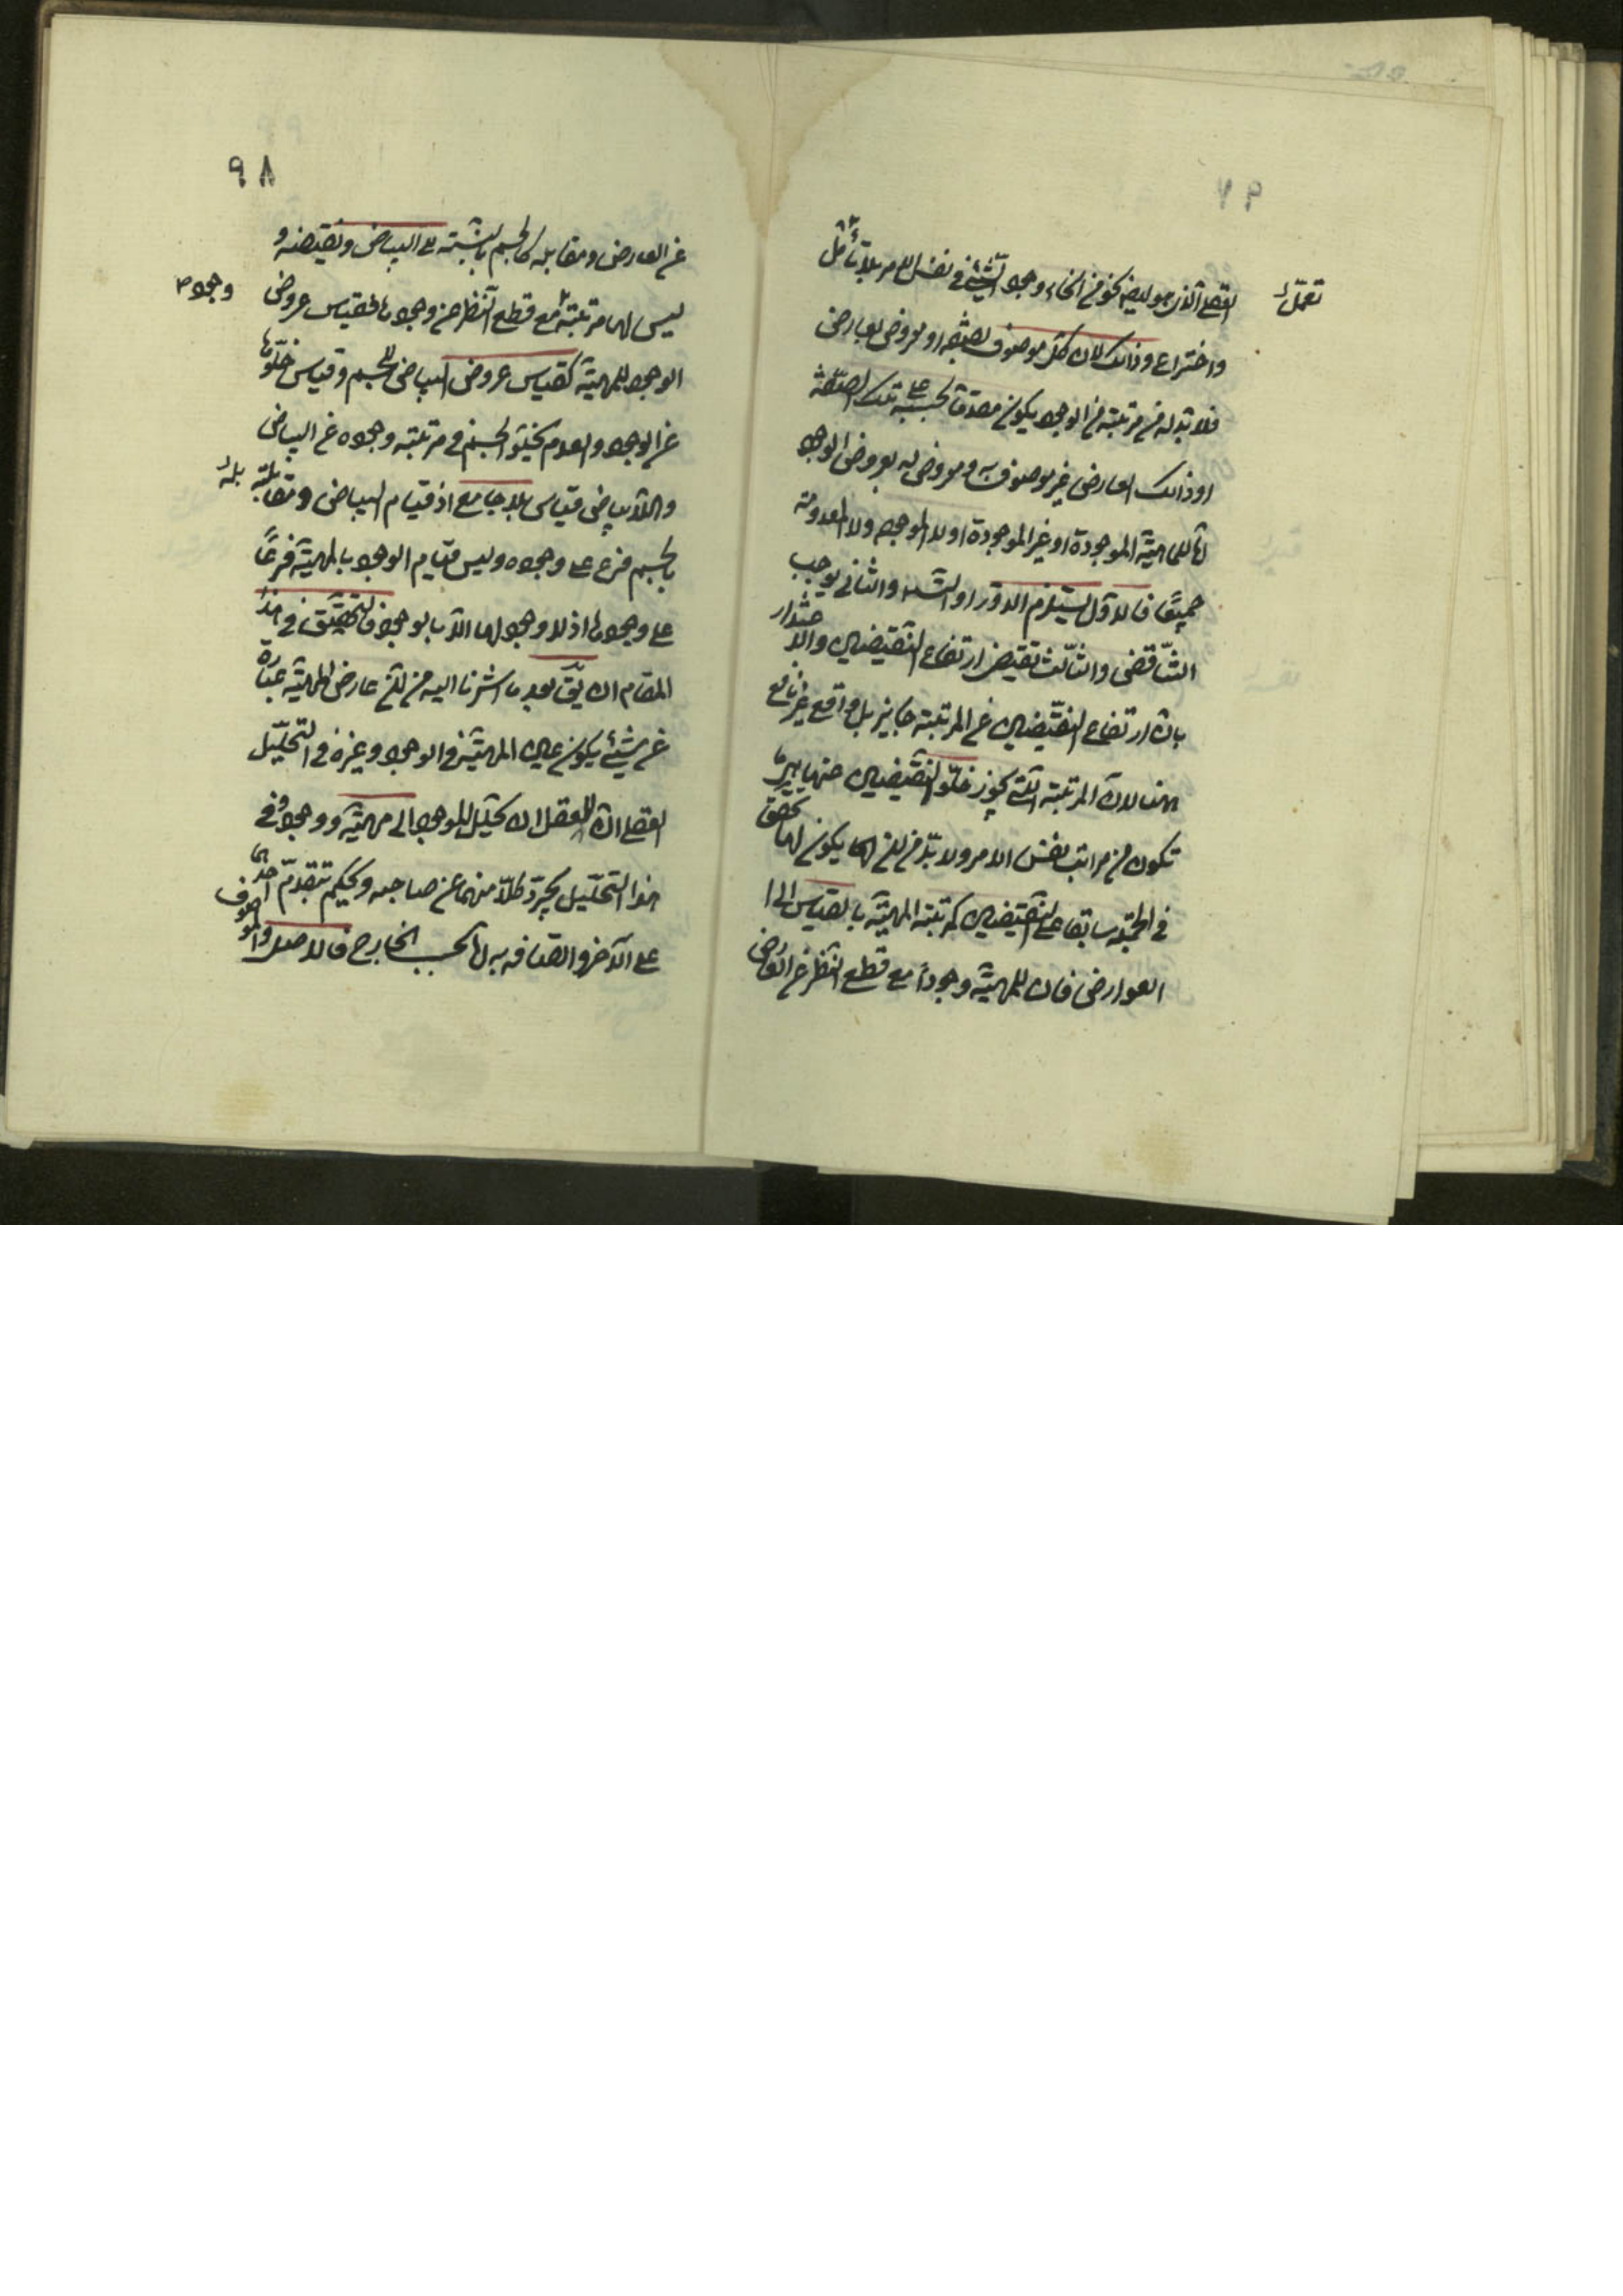 العقلي الذي هو ايضا نحو من انحاء وجود الشيء في نفس الامر بلا تعمل
تعمل
واختراع وذلك لان كل موصوف بصفة او معروض لعارض
فلا بد له من مرتبة من الوجود يكون متقدما بحسبه على تلك الصفة
او ذلك العارض غير موصوف به ومعروض له فعروض الوجود
اما للماهية الموجودة او غير الموجودة او لا الموجودة ولا المعدومة
جميعا فالاول يستلزم الدور او التسلسل والثاني يوجب
التناقض والثالث يقتضي ارتفاع النقيضين والاعتذار
بان ارتفاع النقيضين عن المرتبة جايز بل واقع غير نافع
ههنا لان المرتبة التي يجوز خلو النقيضين عنها هي ما
تكون من مراتب نفس الامر ولا بد من ان يكون لها تحقق
في الجملة سابقا على النقيضين كمرتبة المهية بالقياس الى
العوارض فان للمهية وجودا مع قطع النظر عن العارض
٩٨
عن العارض ومقابله كالجسم بالنسبة الى البياض ونقيضه و
ليس لها مرتبة مع قطع النظر عن وجودها فقياس عروض
وجوده
الوجود للمهية كقياس عروض البياض للجسم وقياس خلوها
عن الوجود والعدم بخلو الجسم في مرتبة وجوده عن البياض
واللابياض قياس بلا جامع اذ قيام البياض ومقابله
بالجسم فرع على وجوده وليس قيام الوجود بالمهية فرعا
على وجودها اذ لا وجود لها الا بالوجود فالتحقيق في هذا
المقام ان يق بعد ما اشرنا اليه من ان عارض المهية عبارة
عن شيء يكون عين المهية في الوجود وغيره في التحليل
العقلي ان للعقل ان يحلل الموجود الى مهية ووجود وفي
هذا التحليل يجرد كلا منهما عن صاحبه ويحكم بتقدم احدهما
على الآخر واتصافه به اما بحسب الخارج فالاصل والموصوف